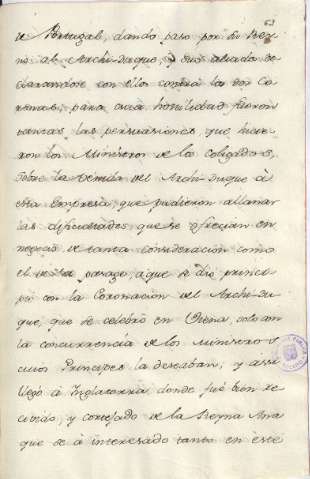 63
de Portugal, dando paso por su Rey-
no al Archi-Duque, y sus aliados de-
clarandose con ellos contra las dos Co-
ronas; para cuia hostilidad fueron
tantas, las persuasiones, que hicie-
ron los Ministros de los Coligados,
sobre la venida del Archi-Duque à
esta Empresa, que pudieron allanar
las dificultades, que se ofrecian en
negocio de tanta consideracion como
el de este parage, a que se dió princi-
pio con la Coronacion del Archi-Du-
que, que se celebró en Viena, solo con
la concurrencia de los Ministros
cuios Principes la deseaban; y assi
llegó à Inglaterra, donde fué bien re-
civido, y cortejado de la Reyna Ana
que se à interesado tanto en este